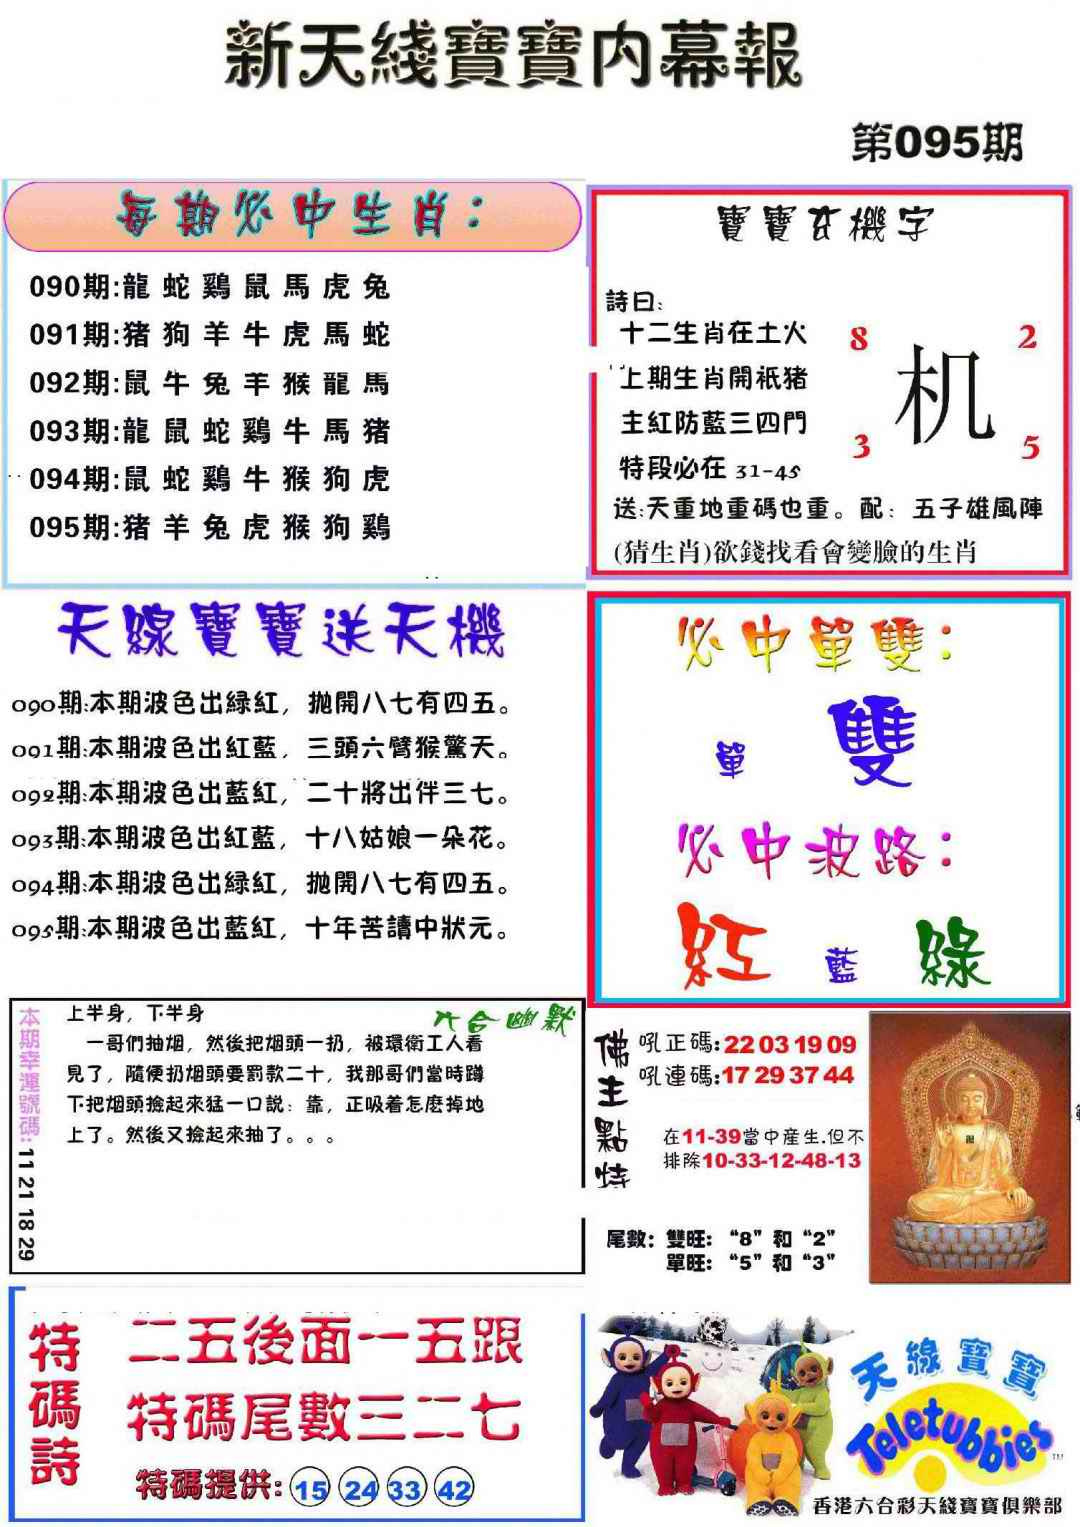 新天綫寶寶内幕報
第095期
每期必中生肖：
090期:龍 蛇 鷄 鼠 馬 虎 兔
091期:猪 狗 羊 牛 虎 馬 蛇
092期:鼠 牛 兔 羊 猴 龍 馬
093期:龍 鼠 蛇 鷄 牛 馬 猪
094期:鼠 蛇 鷄 牛 猴 狗 虎
095期:猪 羊 兔 虎 猴 狗 鷄
寶寶玄機字
詩曰:
十二生肖在土火
上期生肖開衹猪
主紅防藍三四門
特段必在 31-45
8 2
机
3 5
送:天重地重碼也重。配：五子雄風陣
(猜生肖)欲錢找看會變臉的生肖
天線寶寶送天機
090期:本期波色出緑紅，抛開八七有四五。
091期:本期波色出紅藍，三頭六臂猴驚天。
092期:本期波色出藍紅，二十將出伴三七。
093期:本期波色出紅藍，十八姑娘一朵花。
094期:本期波色出緑紅，抛開八七有四五。
095期:本期波色出藍紅，十年苦讀中狀元。
必中單雙：
單 雙
必中波路：
紅 藍 綠
本期幸運號碼: 11 21 18 29
六合幽默
上半身，下半身
一哥們抽烟，然後把烟頭一扔，被環衛工人看
見了，隨便扔烟頭要罰款二十，我那哥們當時蹲
下把烟頭撿起來猛一口説：靠，正吸着怎麽掉地
上了。然後又撿起來抽了。。。
佛主點特
吼正碼:22 03 19 09
吼連碼:17 29 37 44
在11-39當中産生.但不
排除10-33-12-48-13
尾數：雙旺：“8”和“2”
單旺：“5”和“3”
特碼詩
二五後面一五跟
特碼尾數三二七
特碼提供: 15 24 33 42
天線寶寶
Teletubbies
TM
香港六合彩天綫寶寶俱樂部